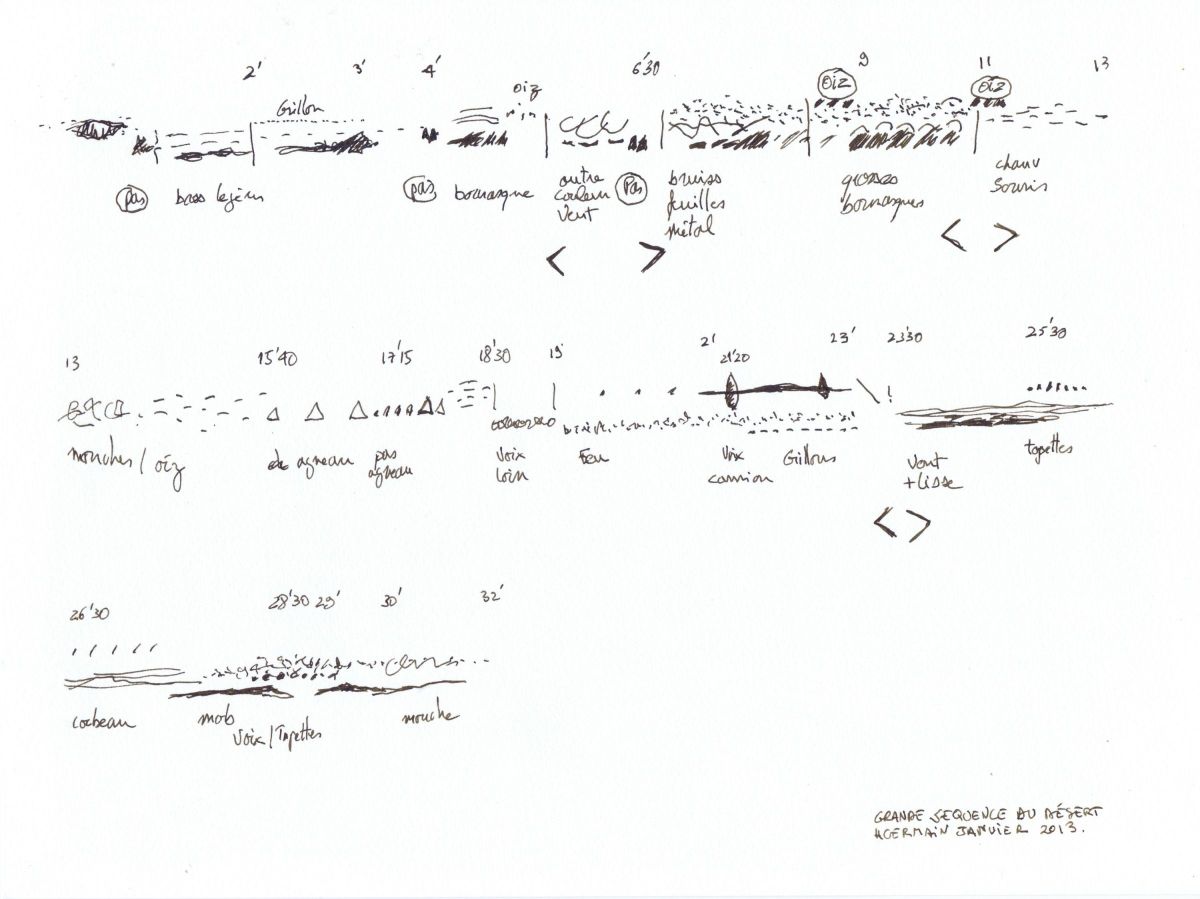 2' 3' 4' 6'30 9 11 13
Grillon oiz OIZ OIZ
pas bourrasque autre couleur vent pas bruiss feuilles métal grosses bourrasques chauv souris
< > < >
13 15'40 17'15 18'30 19' 21' 21'20 23' 23'30 25'30
mouches / oiz agneau pas agneau voix loin Feu voix camion Grillons vent + lisse tapettes
< >
26'30 28'30 29' 30' 32'
corbeau mob voix / Tapettes mouche
GRANDE SEQUENCE DU DÉSERT
HGERMAIN JANVIER 2013.